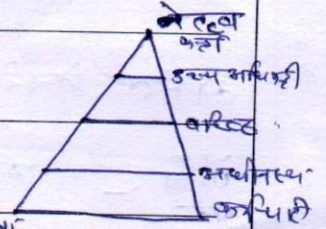 नेतृत्व
कर्ता
उच्च अधिकारी
वरिष्ठ
अधीनस्थ
कर्मचारी